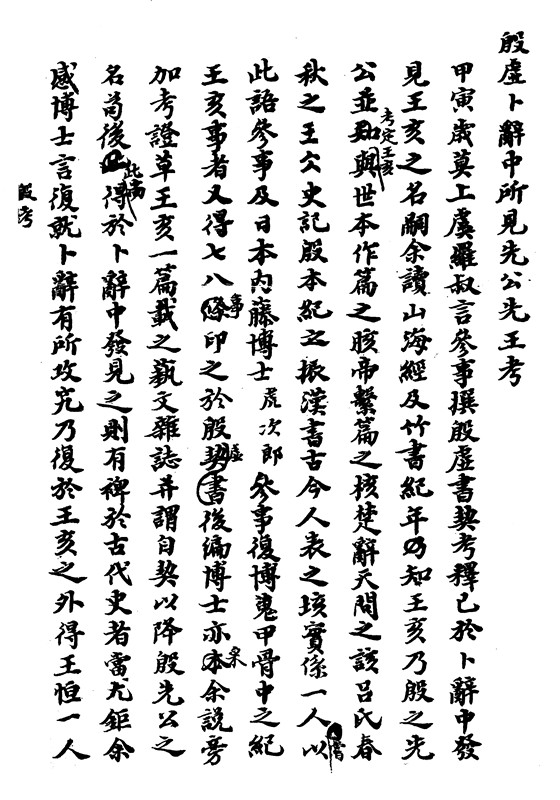 殷虛卜辭中所見先公先王考
甲寅歲莫上虞羅叔言參事撰殷虛書契考釋已於卜辭中發
見王亥之名嗣余讀山海經及竹書紀年乃知王亥乃殷之先
公並考定王亥與世本作篇之胲帝繫篇之核楚辭天問之該呂氏春
秋之王仌史記殷本紀之振漢書古今人表之垓實係一人嘗以
此語參事及日本內藤博士虎次郎參事復博蒐甲骨中之紀
王亥事者又得七八事印之於殷虛書契後編博士亦采余說旁
加考證草王亥一篇載之藝文雜誌并謂自契以降殷先公之
名苟後此尚得於卜辭中發見之則有裨於古代史者當尤鉅余
感博士言復就卜辭有所攻究乃復於王亥之外得王恒一人
殷考